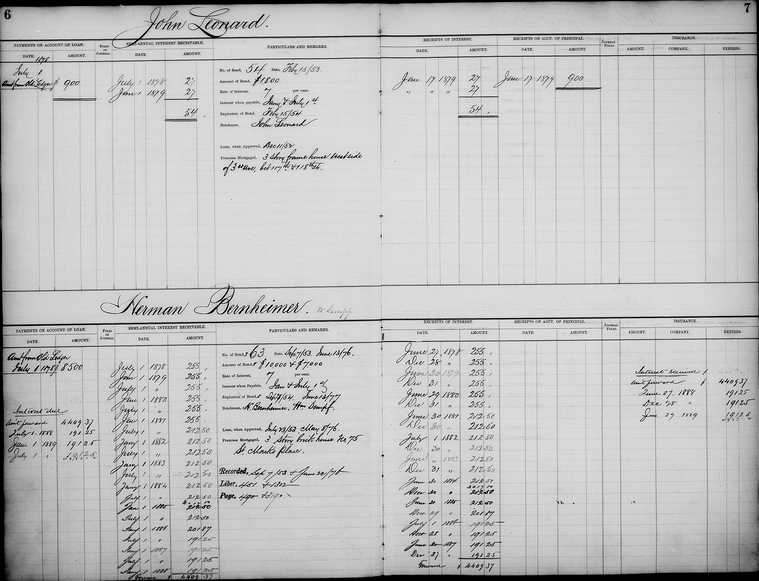 6
7
John Leonard.
PAYMENTS ON ACCOUNT OF LOAN.
SEMI-ANNUAL INTEREST RECEIVABLE.
PARTICULARS AND REMARKS.
RECEIPTS OF INTEREST.
RECEIPTS ON ACCT. OF PRINCIPAL.
INSURANCE.
DATE. AMOUNT.
DATE. AMOUNT.
DATE. AMOUNT.
DATE. AMOUNT.
AMOUNT. COMPANY. EXPIRES.
1878
July 1
Amt from Old Ledger $ 900
July 1 1878 27
Jan 1 1879 27
54
No. of Bond, 514 Date, Feb 15/53.
Amount of Bond, $1800
Rate of Interest, 7 per cent.
Interest when payable, Jany & July 1st
Expiration of Bond, Feby 15/54
Bondsmen, John Leonard
Loan, when Approved, Dec 11/52
Premises Mortgaged, 3 Story frame house west side
of 3rd Ave, bet 117th & 118th Sts.
Jan 17 1879 27
" " " 27
54
Jan 17 1879 900
Herman Bernheimer.
PAYMENTS ON ACCOUNT OF LOAN.
SEMI-ANNUAL INTEREST RECEIVABLE.
PARTICULARS AND REMARKS.
RECEIPTS OF INTEREST.
RECEIPTS ON ACCT. OF PRINCIPAL.
INSURANCE.
DATE. AMOUNT.
DATE. AMOUNT.
DATE. AMOUNT.
DATE. AMOUNT.
AMOUNT. COMPANY. EXPIRES.
Amt from Old Ledger
July 1 1878 $ 8500
Interest due
Amt forward 4409 37
July 1 1888 191 25
Jan 1 1889 191 25
July 1 "
July 1 1878 255
Jan 1 1879 255
July 1 " 255
Jan 1 1880 255
July 1 " 255
Jan 1 1881 255
July 1 " 212 50
Jany 1 1882 212 50
July 1 " 212 50
Jany 1 1883 212 50
July 1 " 212 50
Jany 1 1884 212 50
July 1 " 212 50
Jan 1 1885 212 50
July 1 " 212 50
Jany 1 1886 201 87
July 1 " 191 25
Jany 1 1887 191 25
July 1 " 191 25
Jany 1 1888 191 25
Forward $ 4409 37
No. of Bond, 63 Date, Sep 7/53. June 13/76.
Amount of Bond, $10000 & $7000
Rate of Interest, 7 per cent.
Interest when Payable, Jan & July 1st
Expiration of Bond, Sep 7/54, June 13/77
Bondsmen, H. Bernheimer, Wm Gumpf.
Loan, when Approved, July 29/53 May 8/76.
Premises Mortgaged, 3 Story brick house No. 75
St. Marks place.
Recorded, Sep 7/53 &
Liber, 451 & 1312
Page,
June 27 1878 255
Dec 28 " 255
June 30 1879 255
Dec 31 " 255
June 29 1880 255
Dec 31 " 255
June 30 1881 212 50
Dec 30 " 212 50
July 1 1882 212 50
Dec 30 " 212 50
June 1883 212 50
Dec 31 " 212 50
June 31 1884 212 50
Dec 30 " 212 50
June 30 1885 212 50
Dec 29 " 201 87
July 1 1886 191 25
Dec 28 " 191 25
June 30 1887 191 25
Dec 27 " 191 25
Forward $ 4409 37
Interest received
Amt forward $ 4409 37
June 27, 1888 191 25
Dec 28 " 191 25
June 27 1889 191 25